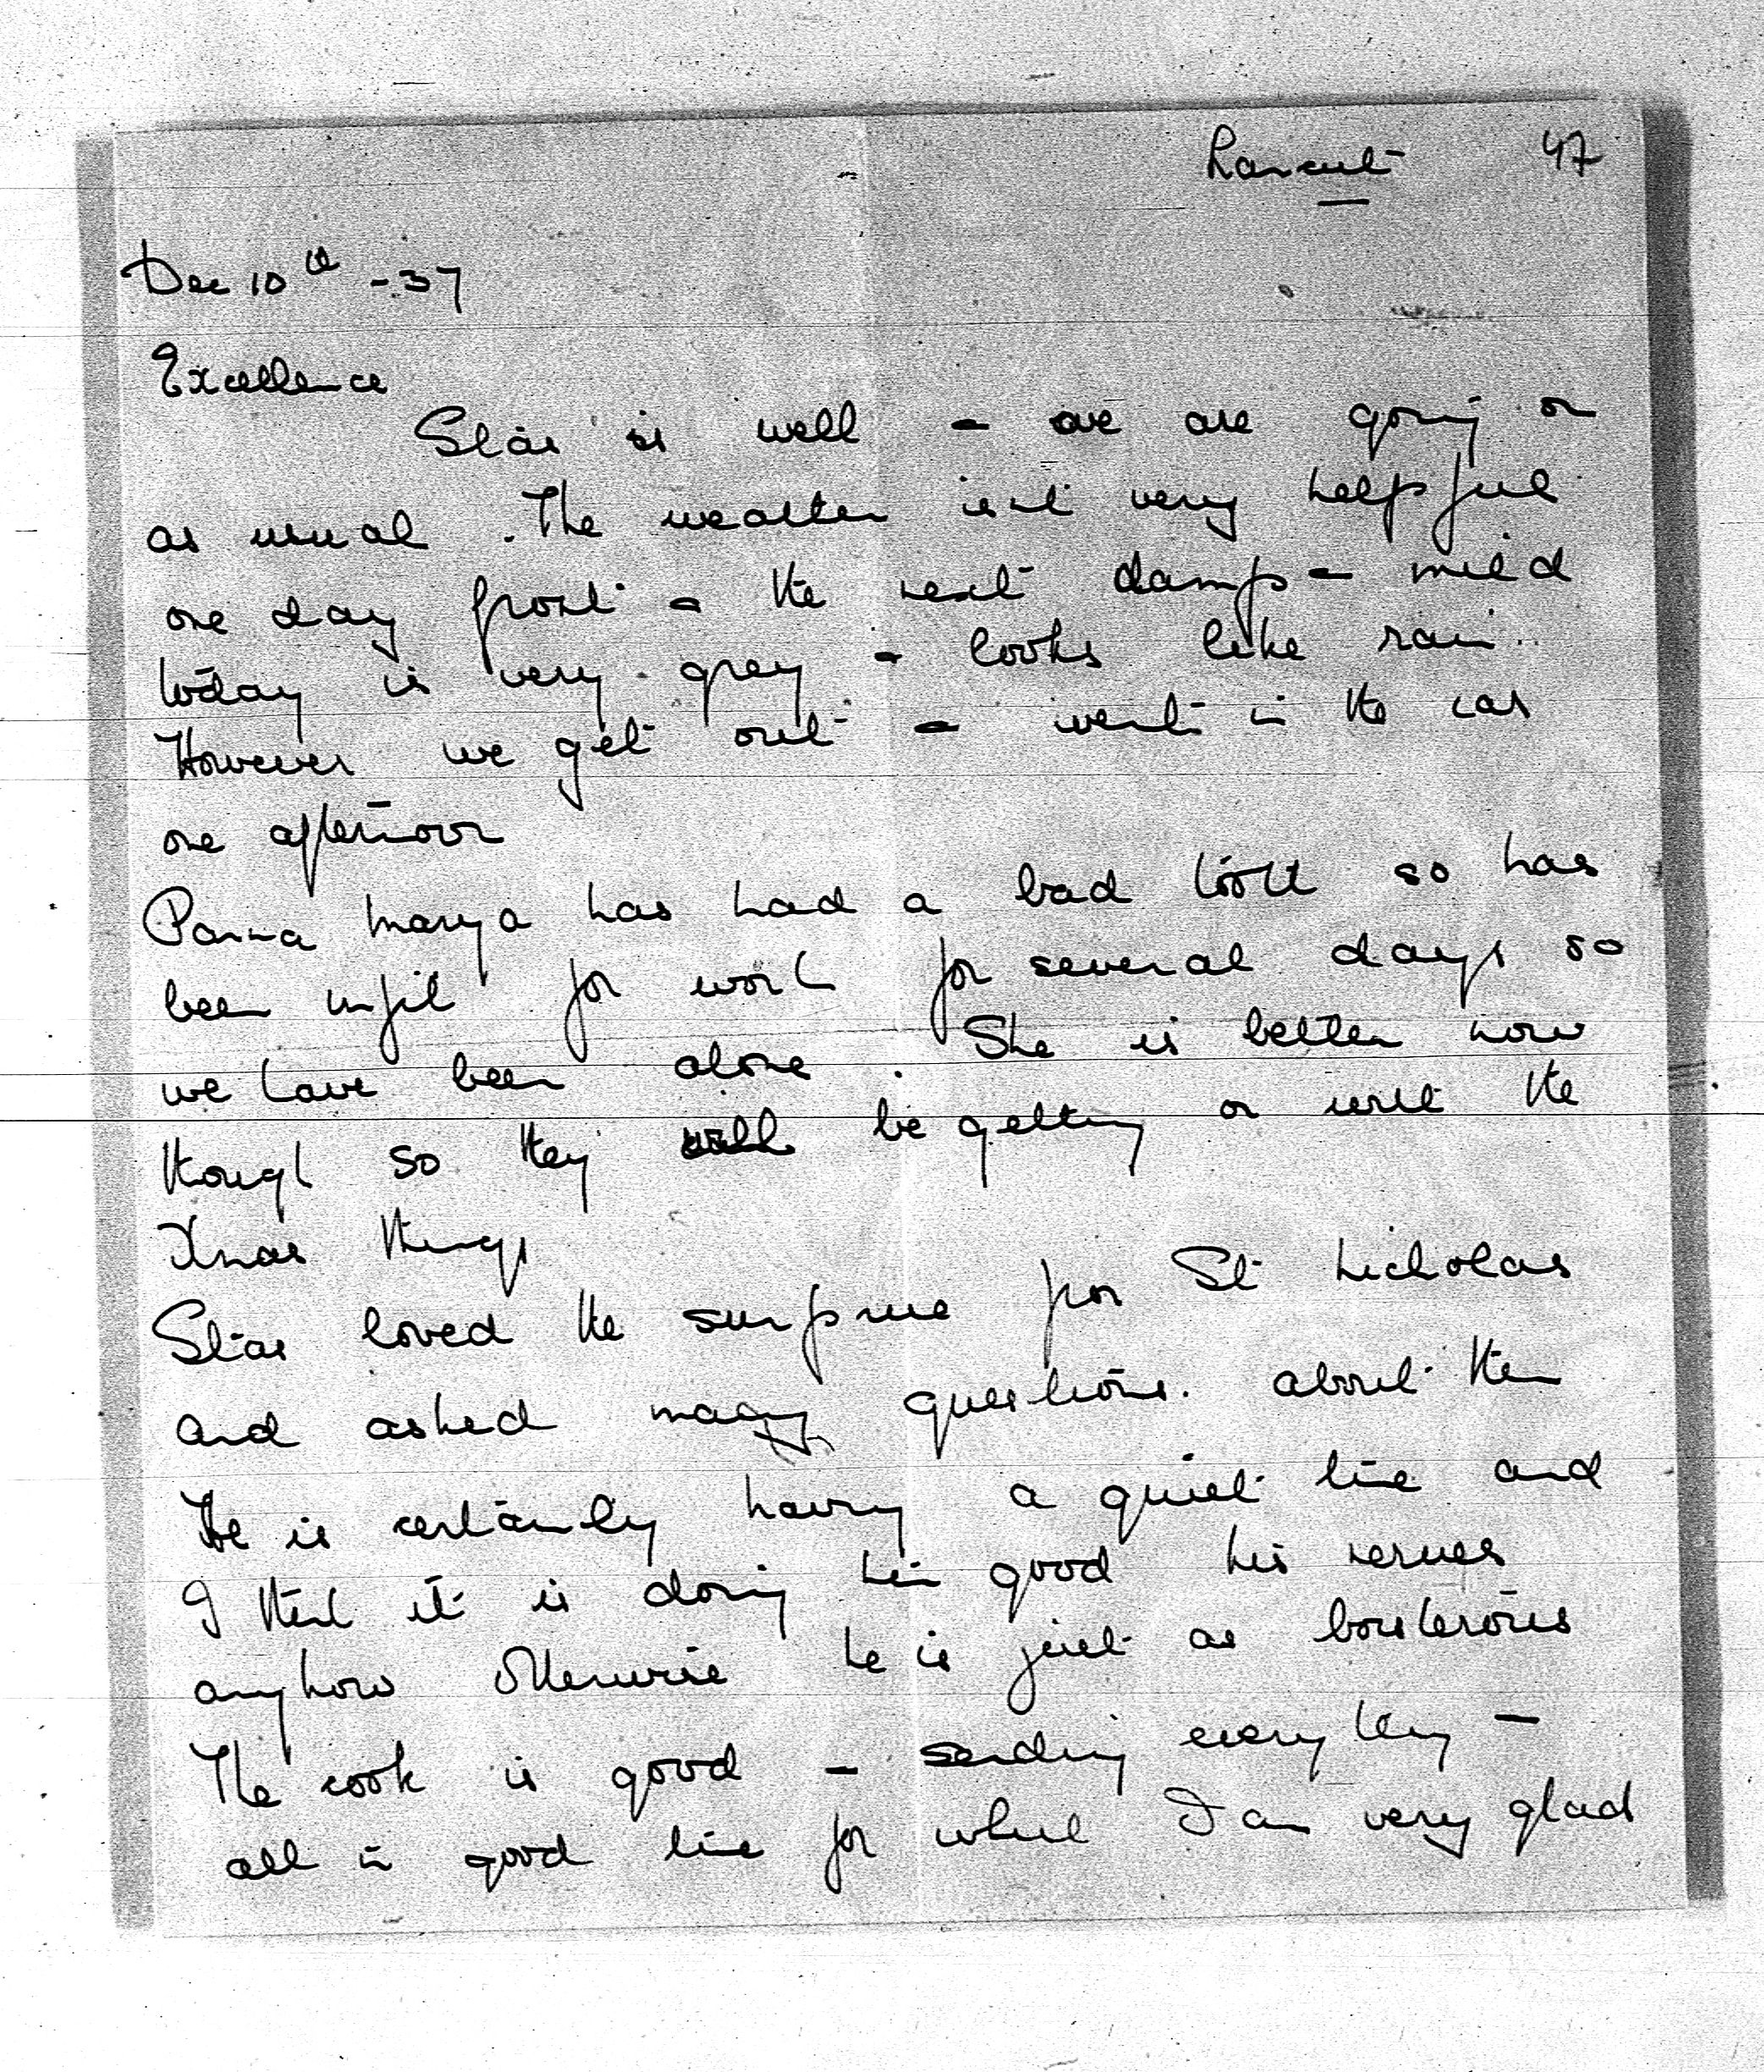 Lancut 47
Dec 10th - 37
Excellence
Stas is well - we are going on
as usual. The weather isnt very helpful
one day frost - the next damp - mild
today is very grey - looks like rain.
However we get out - went in the car
one afternoon
Panna Marya has had a bad tooth so has
been unfit for work for several days so
we have been alone. She is better now
though so they will be getting on with the
Xmas things
Stas loved the surprise for St Nicholas
and asked many questions. about them
He is certainly having a quiet time and
I think it is doing him good his nerves
anyhow otherwise he is just as boisterous
The cook is good - sending everything -
all in good time for which I am very glad